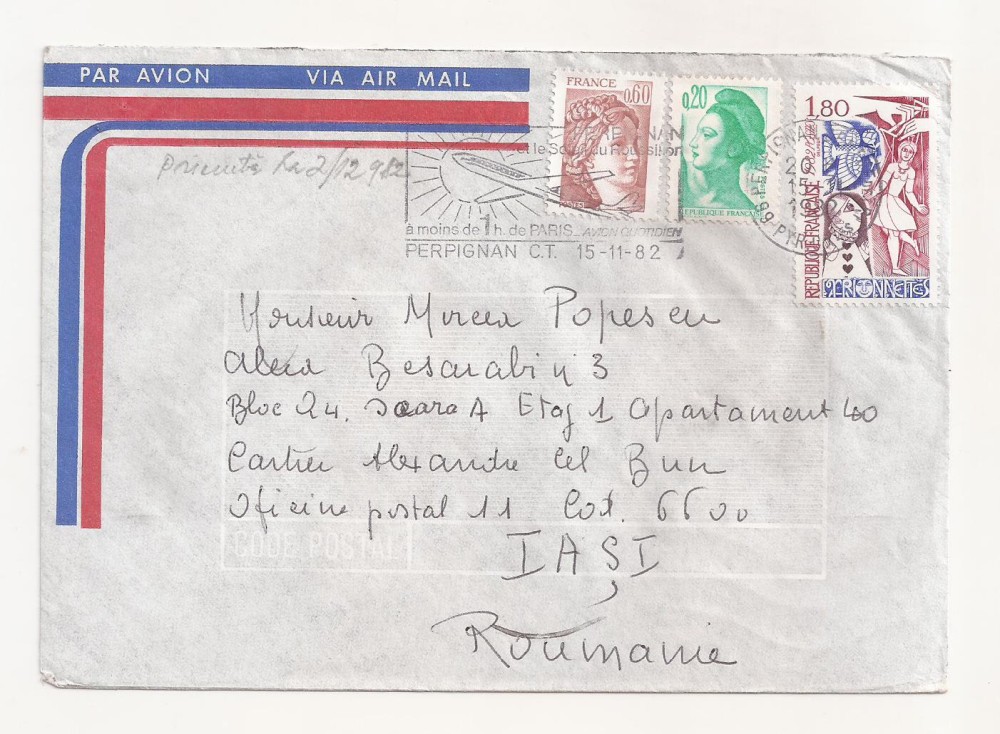 PAR AVION VIA AIR MAIL
FRANCE 0,60
POSTES
0,20
REPUBLIQUE FRANCAISE
1,80
REPUBLIQUE FRANÇAISE
MARIONNETTES
et le Soleil du Roussillon
à moins de 1 h. de PARIS AVION QUOTIDIEN
PERPIGNAN C.T. 15-11-82
15-
66 PYR
la 2/12 982
Monsieur Mircea Popescu
Aleea Besarabiy 3
Bloc 24, Scara A Etag 1 Apartament 40
Cartier Alexandre Cel Bun
Oficine postal 11 Cod. 6600
CODE POSTAL
IAȘI
Roumanie